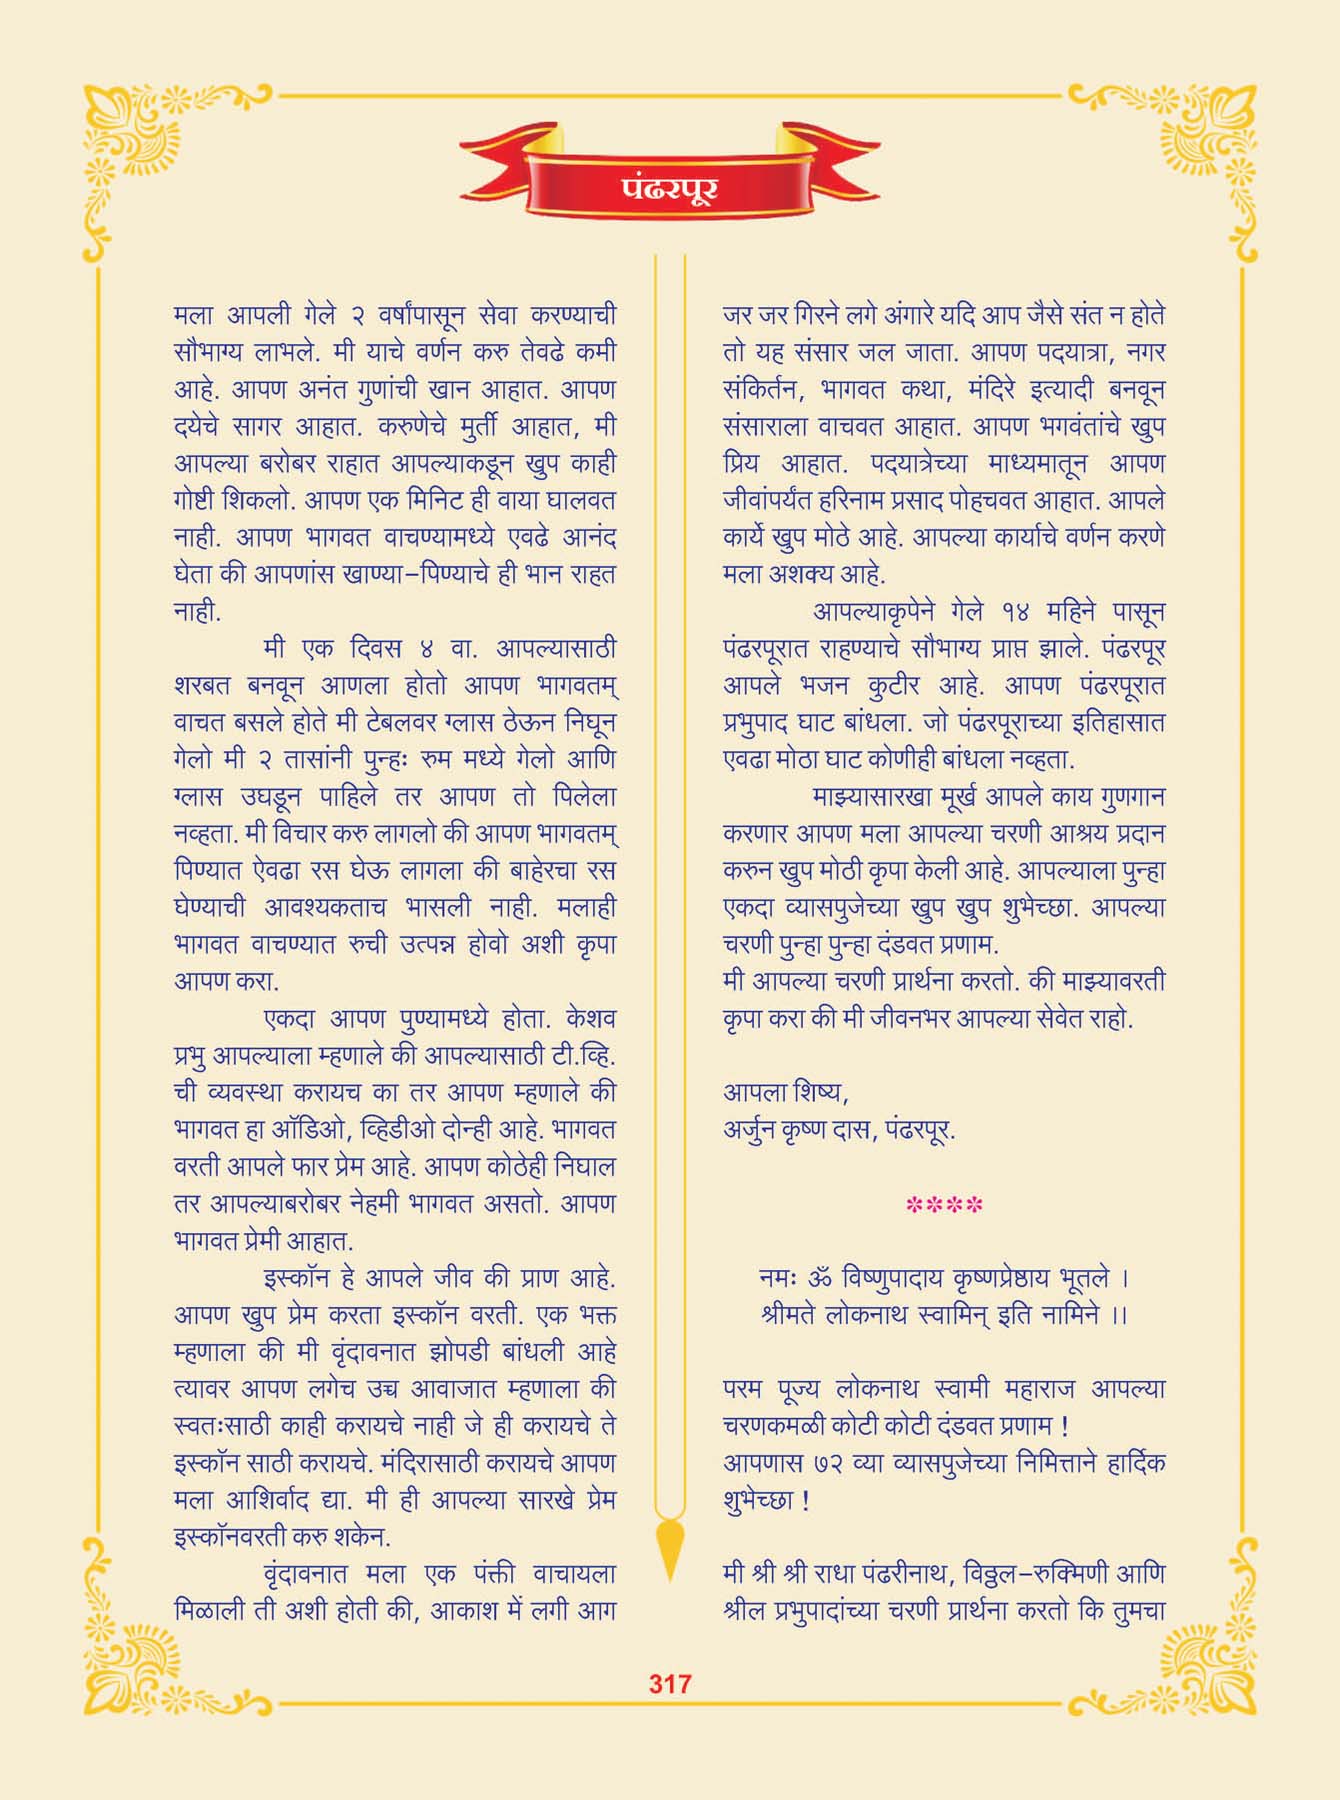 पंढरपूर
मला आपली गेले २ वर्षांपासून सेवा करण्याची
सौभाग्य लाभले. मी याचे वर्णन करु तेवढे कमी
आहे. आपण अनंत गुणांची खान आहात. आपण
दयेचे सागर आहात. करुणेचे मुर्ती आहात, मी
आपल्या बरोबर राहात आपल्याकडून खुप काही
गोष्टी शिकलो. आपण एक मिनिट ही वाया घालवत
नाही. आपण भागवत वाचण्यामध्ये एवढे आनंद
घेता की आपणांस खाण्या-पिण्याचे ही भान राहत
नाही.
मी एक दिवस ४ वा. आपल्यासाठी
शरबत बनवून आणला होतो आपण भागवतम्
वाचत बसले होते मी टेबलवर ग्लास ठेऊन निघून
गेलो मी २ तासांनी पुन्हः रुम मध्ये गेलो आणि
ग्लास उघडून पाहिले तर आपण तो पिलेला
नव्हता. मी विचार करु लागलो की आपण भागवतम्
पिण्यात ऐवढा रस घेऊ लागला की बाहेरचा रस
घेण्याची आवश्यकताच भासली नाही. मलाही
भागवत वाचण्यात रुची उत्पन्न होवो अशी कृपा
आपण करा.
एकदा आपण पुण्यामध्ये होता. केशव
प्रभु आपल्याला म्हणाले की आपल्यासाठी टी.व्हि.
ची व्यवस्था करायच का तर आपण म्हणाले की
भागवत हा ऑडिओ, व्हिडीओ दोन्ही आहे. भागवत
वरती आपले फार प्रेम आहे. आपण कोठेही निघाल
तर आपल्याबरोबर नेहमी भागवत असतो. आपण
भागवत प्रेमी आहात.
इस्कॉन हे आपले जीव की प्राण आहे.
आपण खुप प्रेम करता इस्कॉन वरती. एक भक्त
म्हणाला की मी वृंदावनात झोपडी बांधली आहे
त्यावर आपण लगेच उच्च आवाजात म्हणाला की
स्वतःसाठी काही करायचे नाही जे ही करायचे ते
इस्कॉन साठी करायचे. मंदिरासाठी करायचे आपण
मला आशिर्वाद द्या. मी ही आपल्या सारखे प्रेम
इस्कॉनवरती करु शकेन.
वृंदावनात मला एक पंक्ती वाचायला
मिळाली ती अशी होती की, आकाश में लगी आग
जर जर गिरने लगे अंगारे यदि आप जैसे संत न होते
तो यह संसार जल जाता. आपण पदयात्रा, नगर
संकिर्तन, भागवत कथा, मंदिरे इत्यादी बनवून
संसाराला वाचवत आहात. आपण भगवंतांचे खुप
प्रिय आहात. पदयात्रेच्या माध्यमातून आपण
जीवांपर्यंत हरिनाम प्रसाद पोहचवत आहात. आपले
कार्ये खुप मोठे आहे. आपल्या कार्याचे वर्णन करणे
मला अशक्य आहे.
आपल्याकृपेने गेले १४ महिने पासून
पंढरपूरात राहण्याचे सौभाग्य प्राप्त झाले. पंढरपूर
आपले भजन कुटीर आहे. आपण पंढरपूरात
प्रभुपाद घाट बांधला. जो पंढरपूराच्या इतिहासात
एवढा मोठा घाट कोणीही बांधला नव्हता.
माझ्यासारखा मूर्ख आपले काय गुणगान
करणार आपण मला आपल्या चरणी आश्रय प्रदान
करुन खुप मोठी कृपा केली आहे. आपल्याला पुन्हा
एकदा व्यासपुजेच्या खुप खुप शुभेच्छा. आपल्या
चरणी पुन्हा पुन्हा दंडवत प्रणाम.
मी आपल्या चरणी प्रार्थना करतो. की माझ्यावरती
कृपा करा की मी जीवनभर आपल्या सेवेत राहो.
आपला शिष्य,
अर्जुन कृष्ण दास, पंढरपूर.
****
नमः ॐ विष्णुपादाय कृष्णप्रेष्ठाय भूतले ।
श्रीमते लोकनाथ स्वामिन् इति नामिने ।।
परम पूज्य लोकनाथ स्वामी महाराज आपल्या
चरणकमळी कोटी कोटी दंडवत प्रणाम !
आपणास ७२ व्या व्यासपुजेच्या निमित्ताने हार्दिक
शुभेच्छा !
मी श्री श्री राधा पंढरीनाथ, विठ्ठल-रुक्मिणी आणि
श्रील प्रभुपादांच्या चरणी प्रार्थना करतो कि तुमचा
317